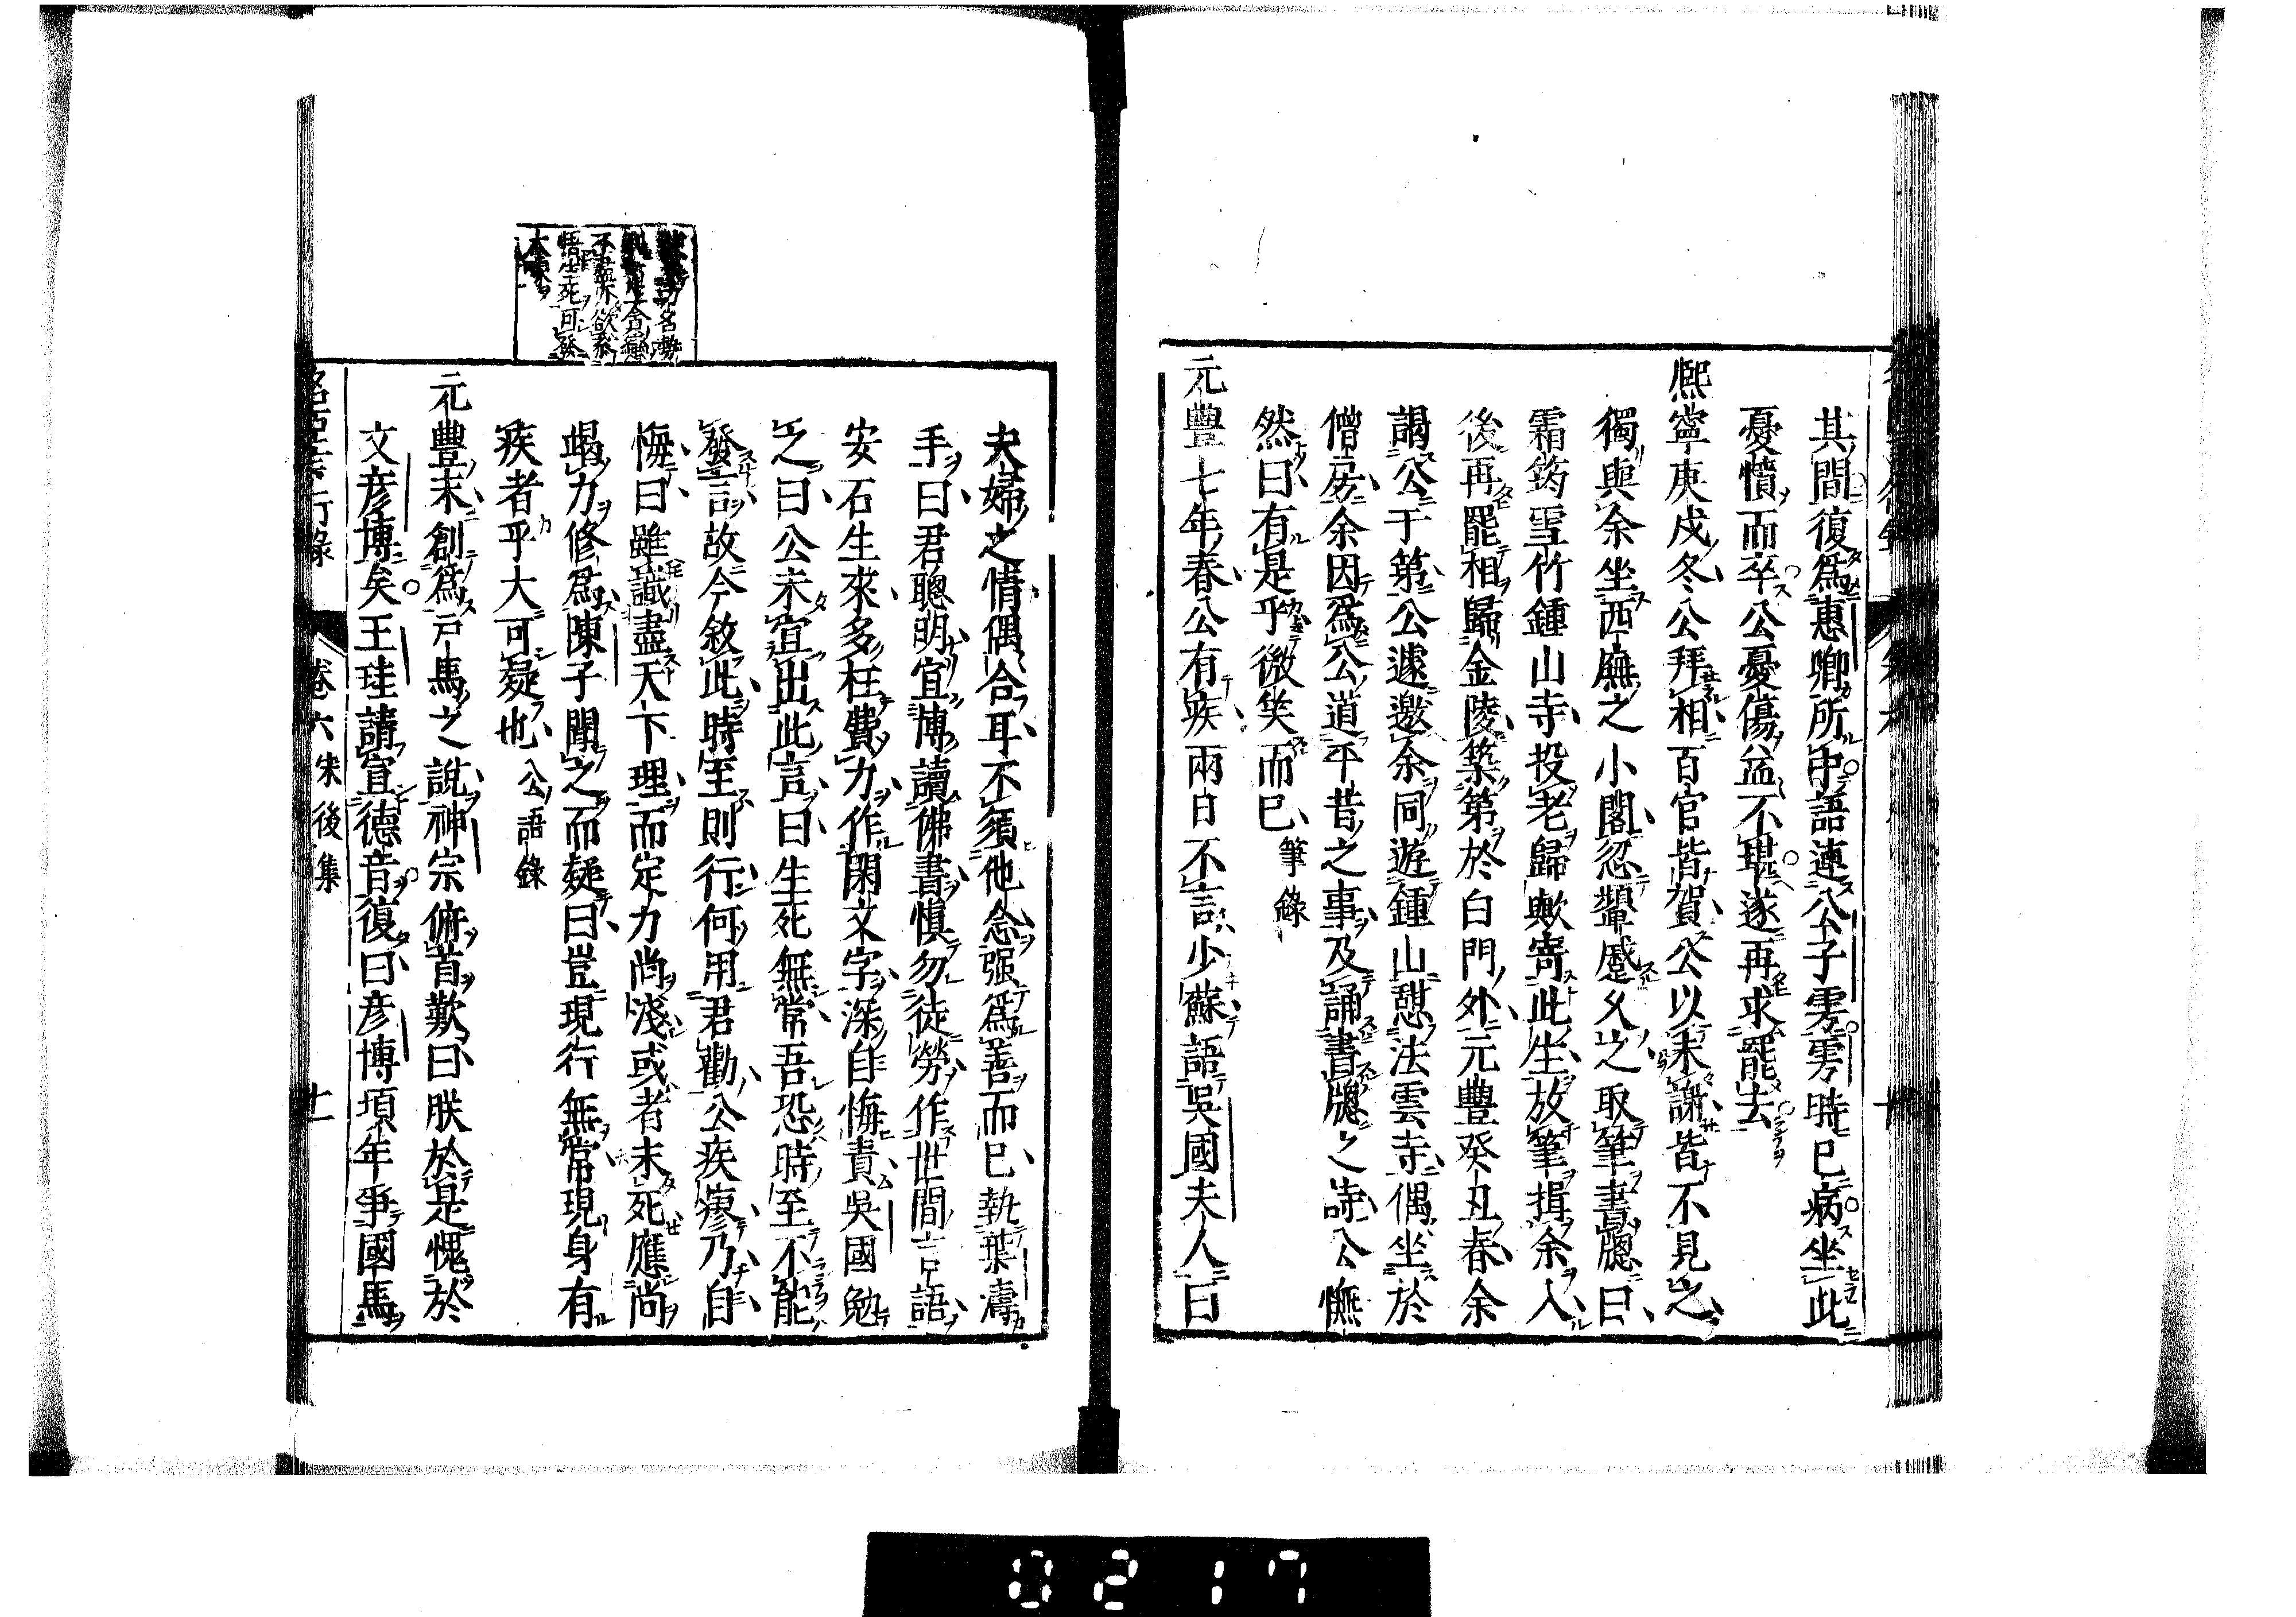 其間復爲惠卿所中語連公子雱雱時已病坐此
憂憤而卒公憂傷益不堪遂再求罷去
熙寧庚戌冬公拜相百官皆賀公以未謝皆不見之
獨與余坐西廡之小閣忽顰蹙久之取筆書牕曰
霜筠雪竹鍾山寺投老歸歟寄此生放筆揖余入
後再罷相歸金陵築第於白門外元豐癸丑春余
謁公于第公遽邀余同遊鍾山憩法雲寺偶坐於
僧房余因爲公道平昔之事及誦書牕之詩公憮
然曰有是乎微笑而已 筆錄
元豐七年春公有疾兩日不言少蘇語吳國夫人曰
夫婦之情偶合耳不須他念强爲善而已執葉濤
手曰君聰明宜博讀佛書愼勿徒勞作世間言語
安石生來多枉費力作閑文字深自悔責吳國勉
之曰公未宜出此言曰生死無常吾恐時至不能
發言故今敘此時至則行何用君勸公疾瘳乃自
悔曰雖識盡天下理而定力尚淺或者未死應尚
竭力修爲陳子聞之而疑曰豈現行無常現身有
疾者乎大可疑也 公語錄
元豐末創爲戸馬之說神宗俯首歎曰朕於是愧於
文彦博矣王珪請宣德音復曰彦博頃年爭國馬
卷六 宋後集 十一